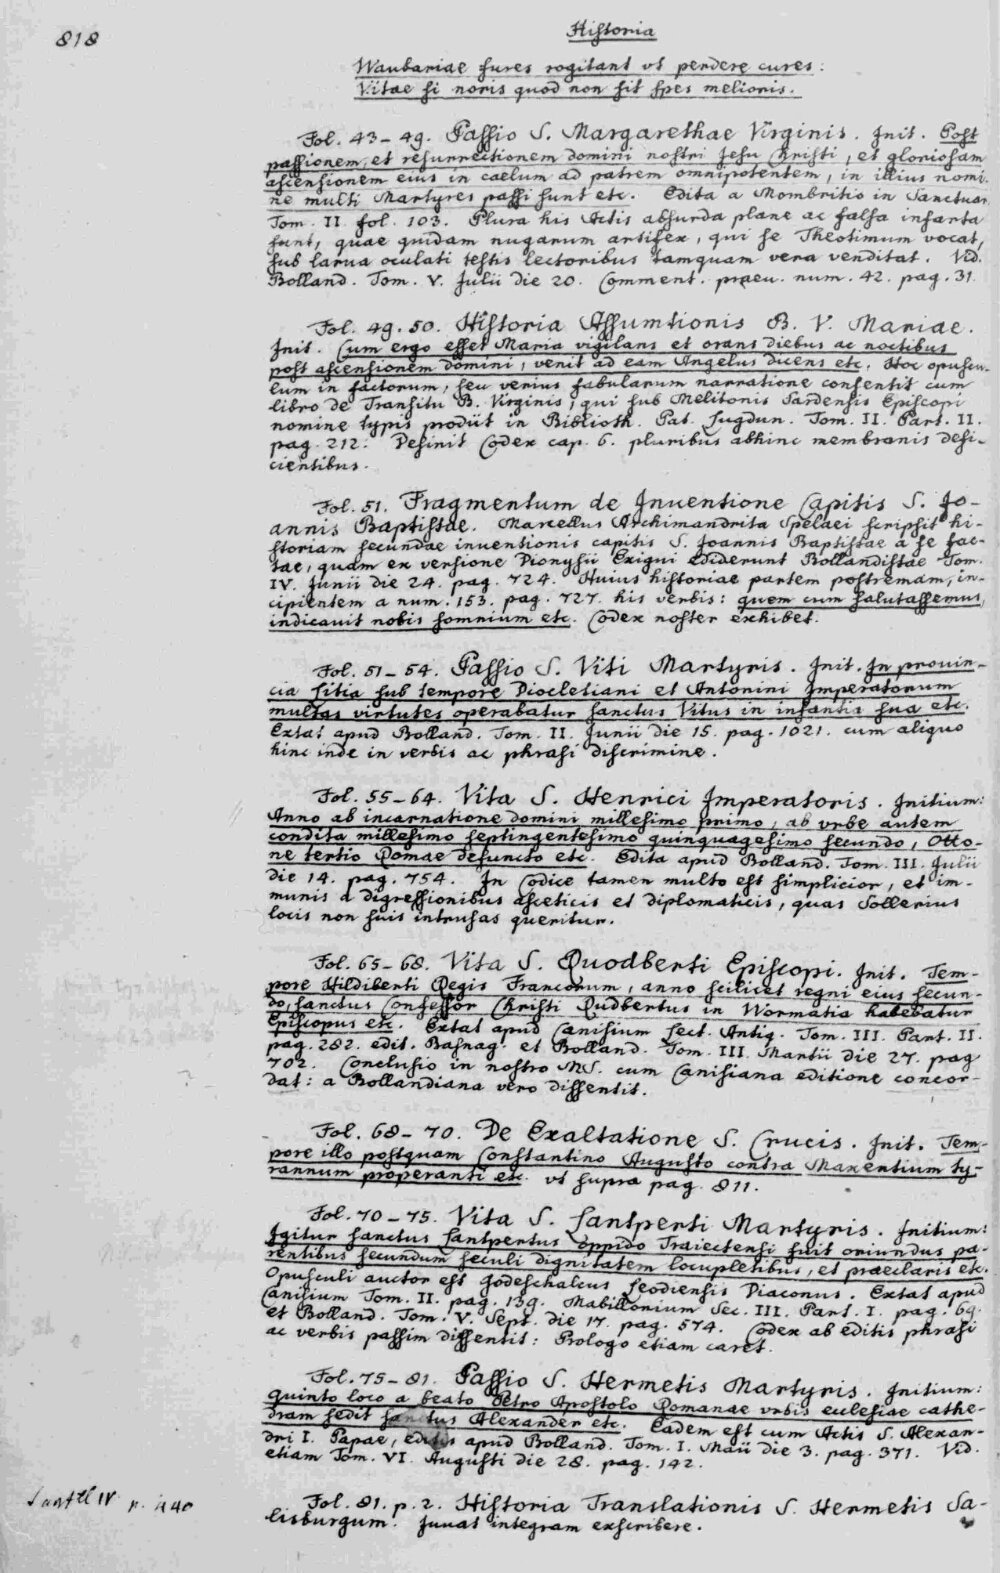 818
Historia
Waubariae fures rogitant vt perdere cures:
Vitae si noris quod non sit spes melioris.
Fol. 43-49. Passio S. Margarethae Virginis. Init. Post
passionem, et resurrectionem domini nostri Jesu Christi, et gloriosam
ascensionem eius in caelum ad patrem omnipotentem, in illius nomi-
ne multi Martyres passi sunt etc. Edita a Mombritio in Sanctuar.
Tom. II fol. 103. Plura his Actis absurda plane ac falsa infarta
sunt, quae quidam nugarum artifex, qui se Theotimum vocat,
sub larua oculati testis lectoribus tamquam vera venditat. Vid.
Bolland. Tom. V. Julii die 20. Comment. praeu. num. 42. pag. 31.
Fol. 49. 50. Historia Assumtionis B. V. Mariae.
Init. Cum ergo esset Maria vigilans et orans diebus ac noctibus
post ascensionem domini, venit ad eam Angelus dicens etc. Hoc opuscu-
lum in factorum, seu verius fabularum narratione consentit cum
libro de Transitu B. Virginis, qui sub Melitonis Sardensis Episcopi
nomine typis prodiit in Biblioth. Pat. Lugdun. Tom. II. Part. II.
pag. 212. Desinit Codex cap. 6. pluribus abhinc membranis defi-
cientibus.
Fol. 51. Fragmentum de Inuentione Capitis S. Jo-
annis Baptistae. Marcellus Archimandrita Spelaei scripsit hi-
storiam secundae inuentionis capitis S. Joannis Baptistae a se fac-
tae, quam ex versione Dionysii Exigui ediderunt Bollandistae Tom.
IV. Junii die 24. pag. 724. Huius historiae partem postremam, in-
cipientem a num. 153. pag. 727. his verbis: quem cum salutassemus,
indicauit nobis somnium etc. Codex noster exhibet.
Fol. 51-54. Passio S. Viti Martyris. Init. In prouin-
cia sitia sub tempore Diocletiani et Antonini Imperatorum
multas virtutes operabatur sanctus Vitus in infantia sua etc.
Extat apud Bolland. Tom. II. Junii die 15. pag. 1021. cum aliquo
hinc inde in verbis ac phrasi discrimine.
Fol. 55-64. Vita S. Henrici Imperatoris. Initium:
Anno ab incarnatione domini millesimo primo, ab vrbe autem
condita millesimo septingentesimo quinquagesimo secundo, Otto-
ne tertio Romae defuncto etc. Edita apud Bolland. Tom. III. Julii
die 14. pag. 754. In Codice tamen multo est simplicior, et im-
munis a digressionibus asceticis et diplomaticis, quas Sollerius
locis non suis intrusas queritur.
Fol. 65-68. Vita S. Ruodberti Episcopi. Init. Tem-
pore Hildiberti Regis Francorum, anno scilicet regni eius secun-
do, sanctus Confessor Christi Rudbertus in Wormatia habebatur
Episcopus etc. Extat apud Canisium Lect. Antiq. Tom. III. Part. II.
pag. 282. edit. Basnag. et Bolland. Tom. III. Martii die 27. pag
702. Conclusio in nostro MS. cum Canisiana editione concor-
dat: a Bollandiana vero dissentit.
Fol. 68-70. De Exaltatione S. Crucis. Init. Tem-
pore illo postquam Constantino Augusto contra Maxentium ty-
rannum properanti etc. vt supra pag. 811.
Fol. 70-75. Vita S. Lantperti Martyris. Initium:
Igitur sanctus Lantpertus oppido Traiectensi fuit oriundus pa-
rentibus secundum seculi dignitatem locupletibus, et praeclaris etc.
Opusculi auctor est Godeschalcus Leodiensis Diaconus. Extat apud
Canisium Tom. II. pag. 139. Mabillonium Sec. III. Part. I. pag. 69.
et Bolland. Tom. V. Sept. die 17. pag. 574. Codex ab editis phrasi
ac verbis passim dissentit: Prologo etiam caret.
Fol. 75-81. Passio S. Hermetis Martyris. Initium:
Quinto loco a beato Petro Apostolo Romanae vrbis ecclesiae cathe-
dram sedit sanctus Alexander etc. Eadem est cum Actis S. Alexan-
dri I. Papae, editis apud Bolland. Tom. I. Maii die 3. pag. 371. Vid.
etiam Tom. VI. Augusti die 28. pag. 142.
Fol. 81. p. 2. Historia Translationis S. Hermetis Sa-
lisburgum. Juuat integram exscribere.
IV p. 440